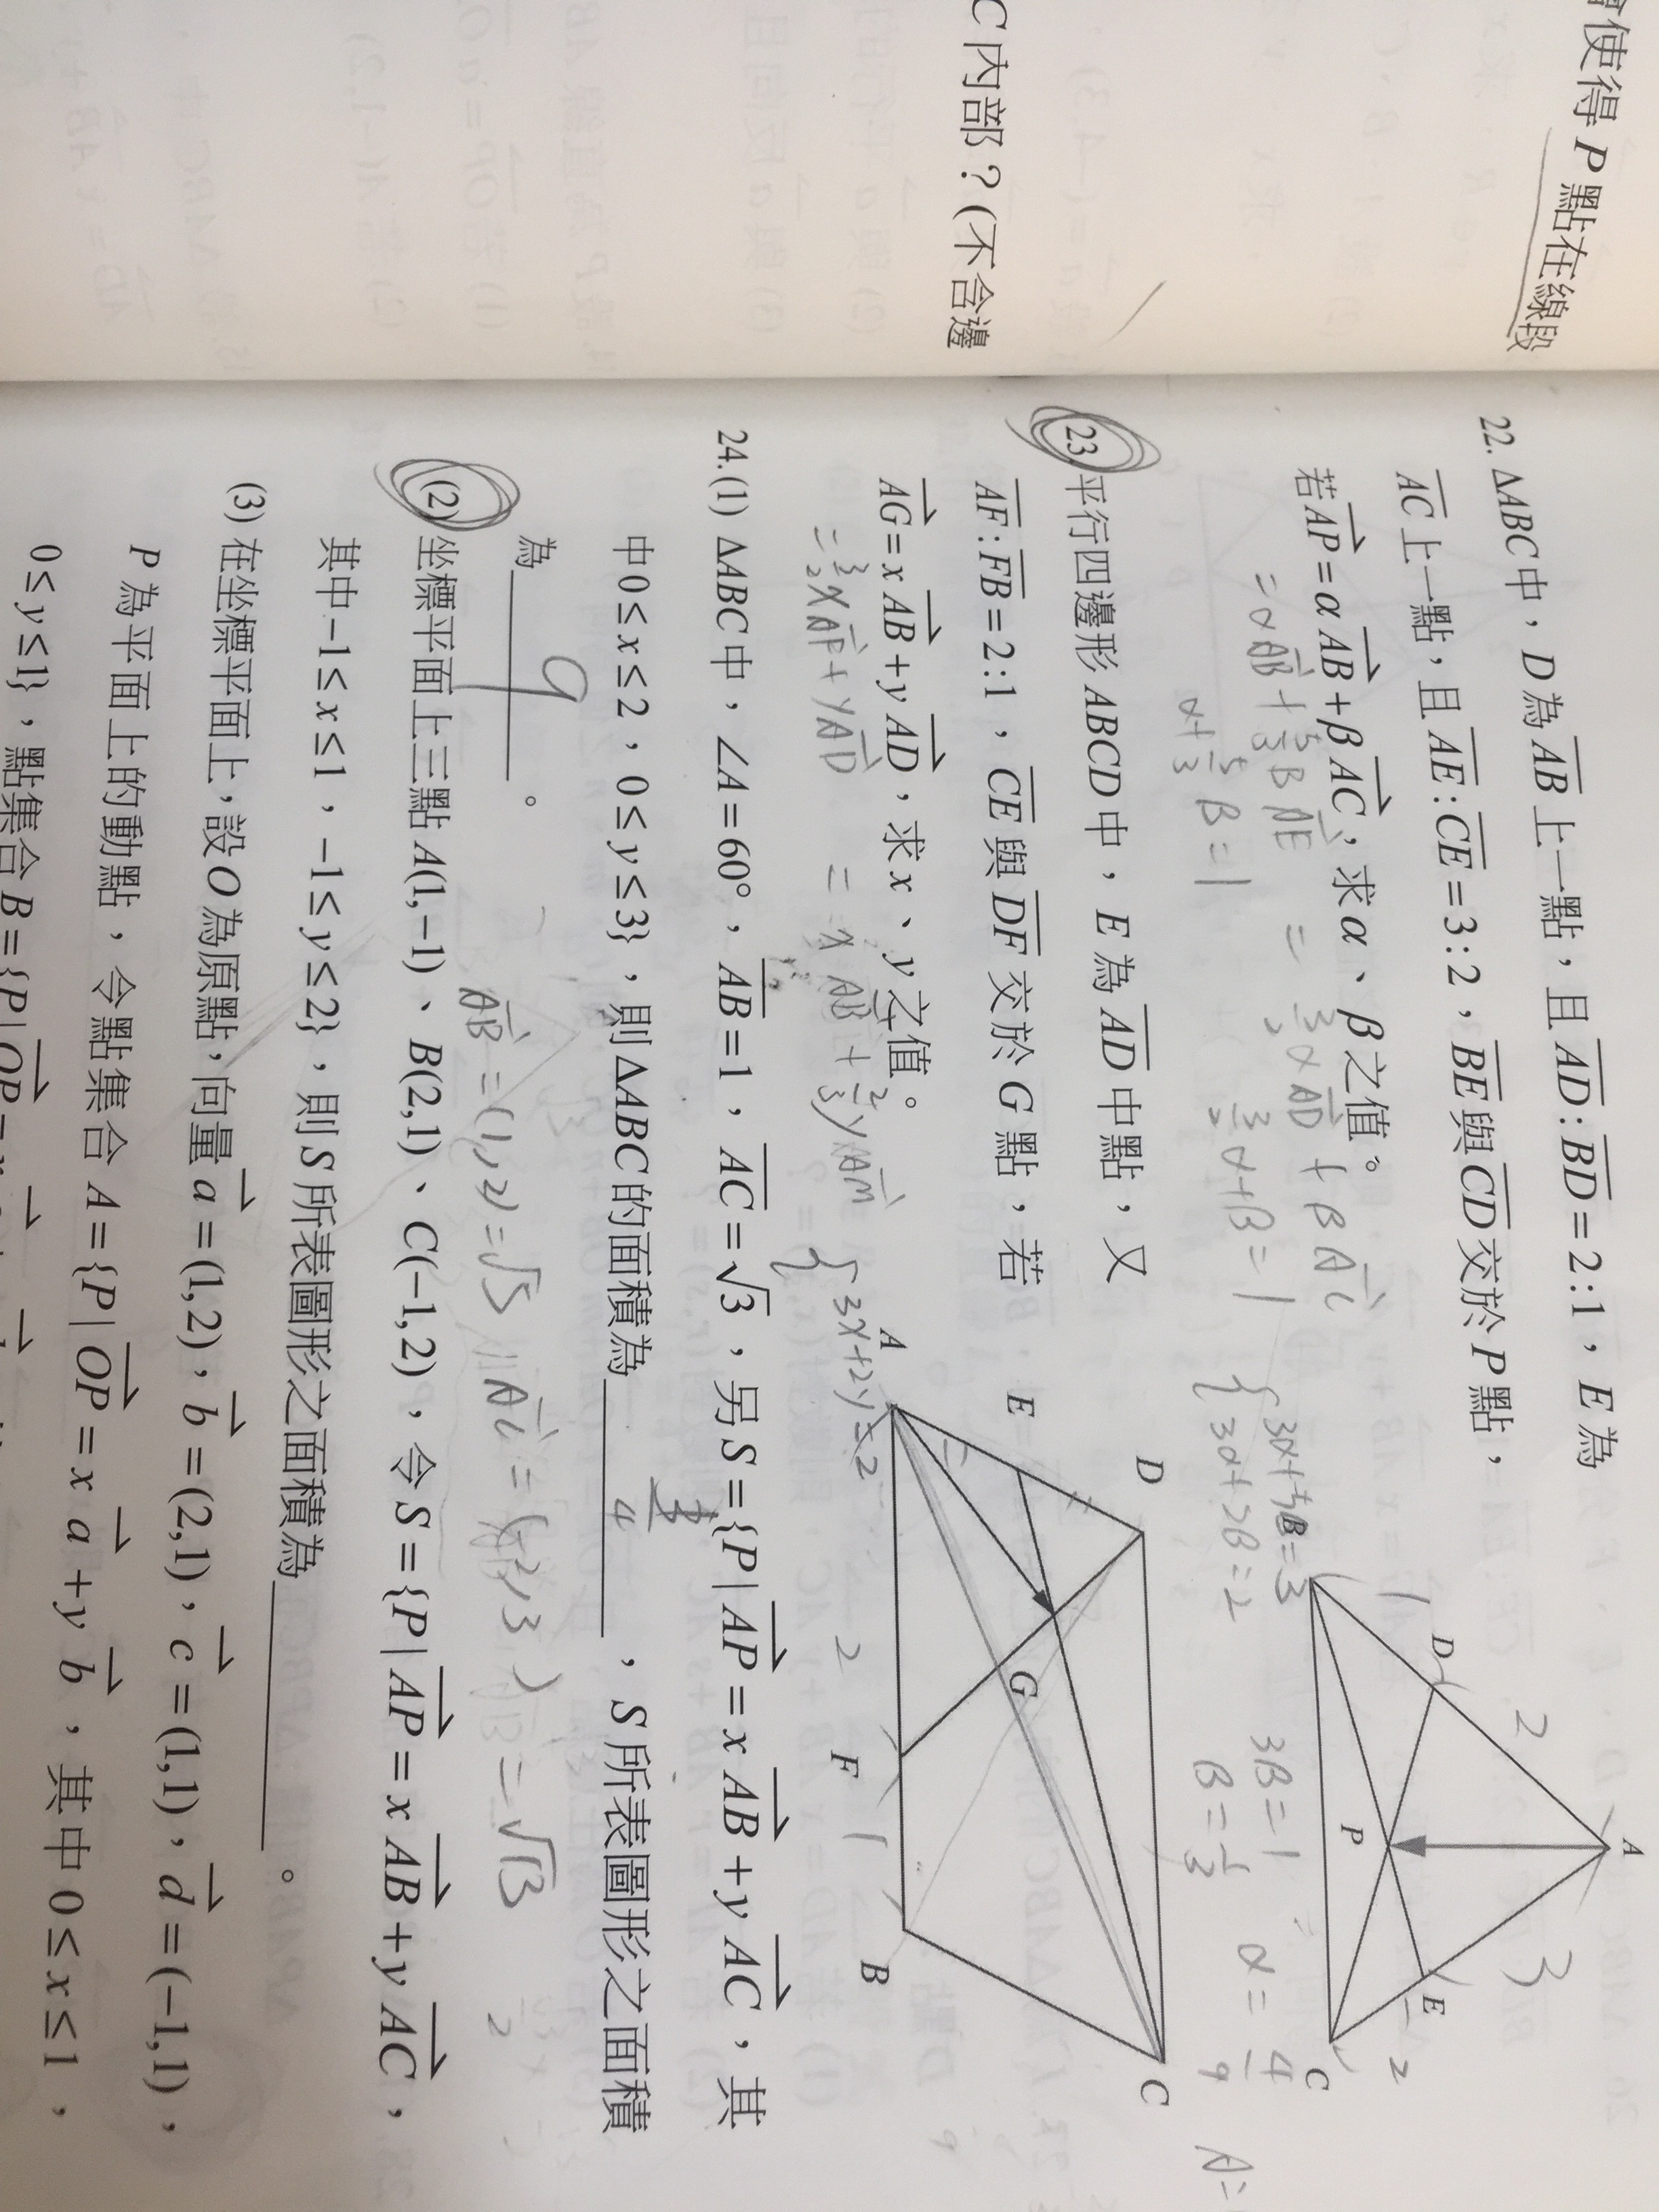 會使得 P 點在線段
C 內部？(不含邊
22. ΔABC 中，D 為 \overline{AB} 上一點，且 \overline{AD}:\overline{BD}=2:1，E 為
\overline{AC} 上一點，且 \overline{AE}:\overline{CE}=3:2，\overline{BE} 與 \overline{CD} 交於 P 點，
若 \overrightarrow{AP}=α\overrightarrow{AB}+β\overrightarrow{AC}，求 α、β 之值。
= α\overrightarrow{AB} + \frac{5}{3}β\overrightarrow{AE} = \frac{3}{2}α\overrightarrow{AD} + β\overrightarrow{AC}
α+\frac{5}{3}β=1
\frac{3}{2}α+β=1
3α+5β=3
3α+2β=2
3β=1
β=\frac{1}{3}
α=\frac{4}{9}
A
2
3
D
E
1
2
P
C
23. 平行四邊形 ABCD 中，E 為 \overline{AD} 中點，又
\overline{AF}:\overline{FB}=2:1，\overline{CE} 與 \overline{DF} 交於 G 點，若
\overrightarrow{AG}=x\overrightarrow{AB}+y\overrightarrow{AD}，求 x、y 之值。
= \frac{3}{2}x\overrightarrow{AF}+y\overrightarrow{AD}
3x+2y=2
D
C
E
G
A
F
B
2
1
24.(1) ΔABC 中，∠A=60°，\overline{AB}=1，\overline{AC}=√3，另 S={P|\overrightarrow{AP}=x\overrightarrow{AB}+y\overrightarrow{AC}，其
中 0≤x≤2，0≤y≤3}，則 ΔABC 的面積為 \frac{3}{4}，S 所表圖形之面積
為 9 。
(2) 坐標平面上三點 A(1,−1)、B(2,1)、C(−1,2)，令 S={P|\overrightarrow{AP}=x\overrightarrow{AB}+y\overrightarrow{AC}，
\overrightarrow{AB}=(1,2)=√5 \overrightarrow{AC}=(-2,3)=√13
其中 −1≤x≤1，−1≤y≤2}，則 S 所表圖形之面積為 。
(3) 在坐標平面上，設 O 為原點，向量 \vec{a}=(1,2)，\vec{b}=(2,1)，\vec{c}=(1,1)，\vec{d}=(−1,1)，
P 為平面上的動點，令點集合 A={P|\overrightarrow{OP}=x\vec{a}+y\vec{b}，其中 0≤x≤1，
0≤y≤1}，點集合 B={P|\overrightarrow{OP}=